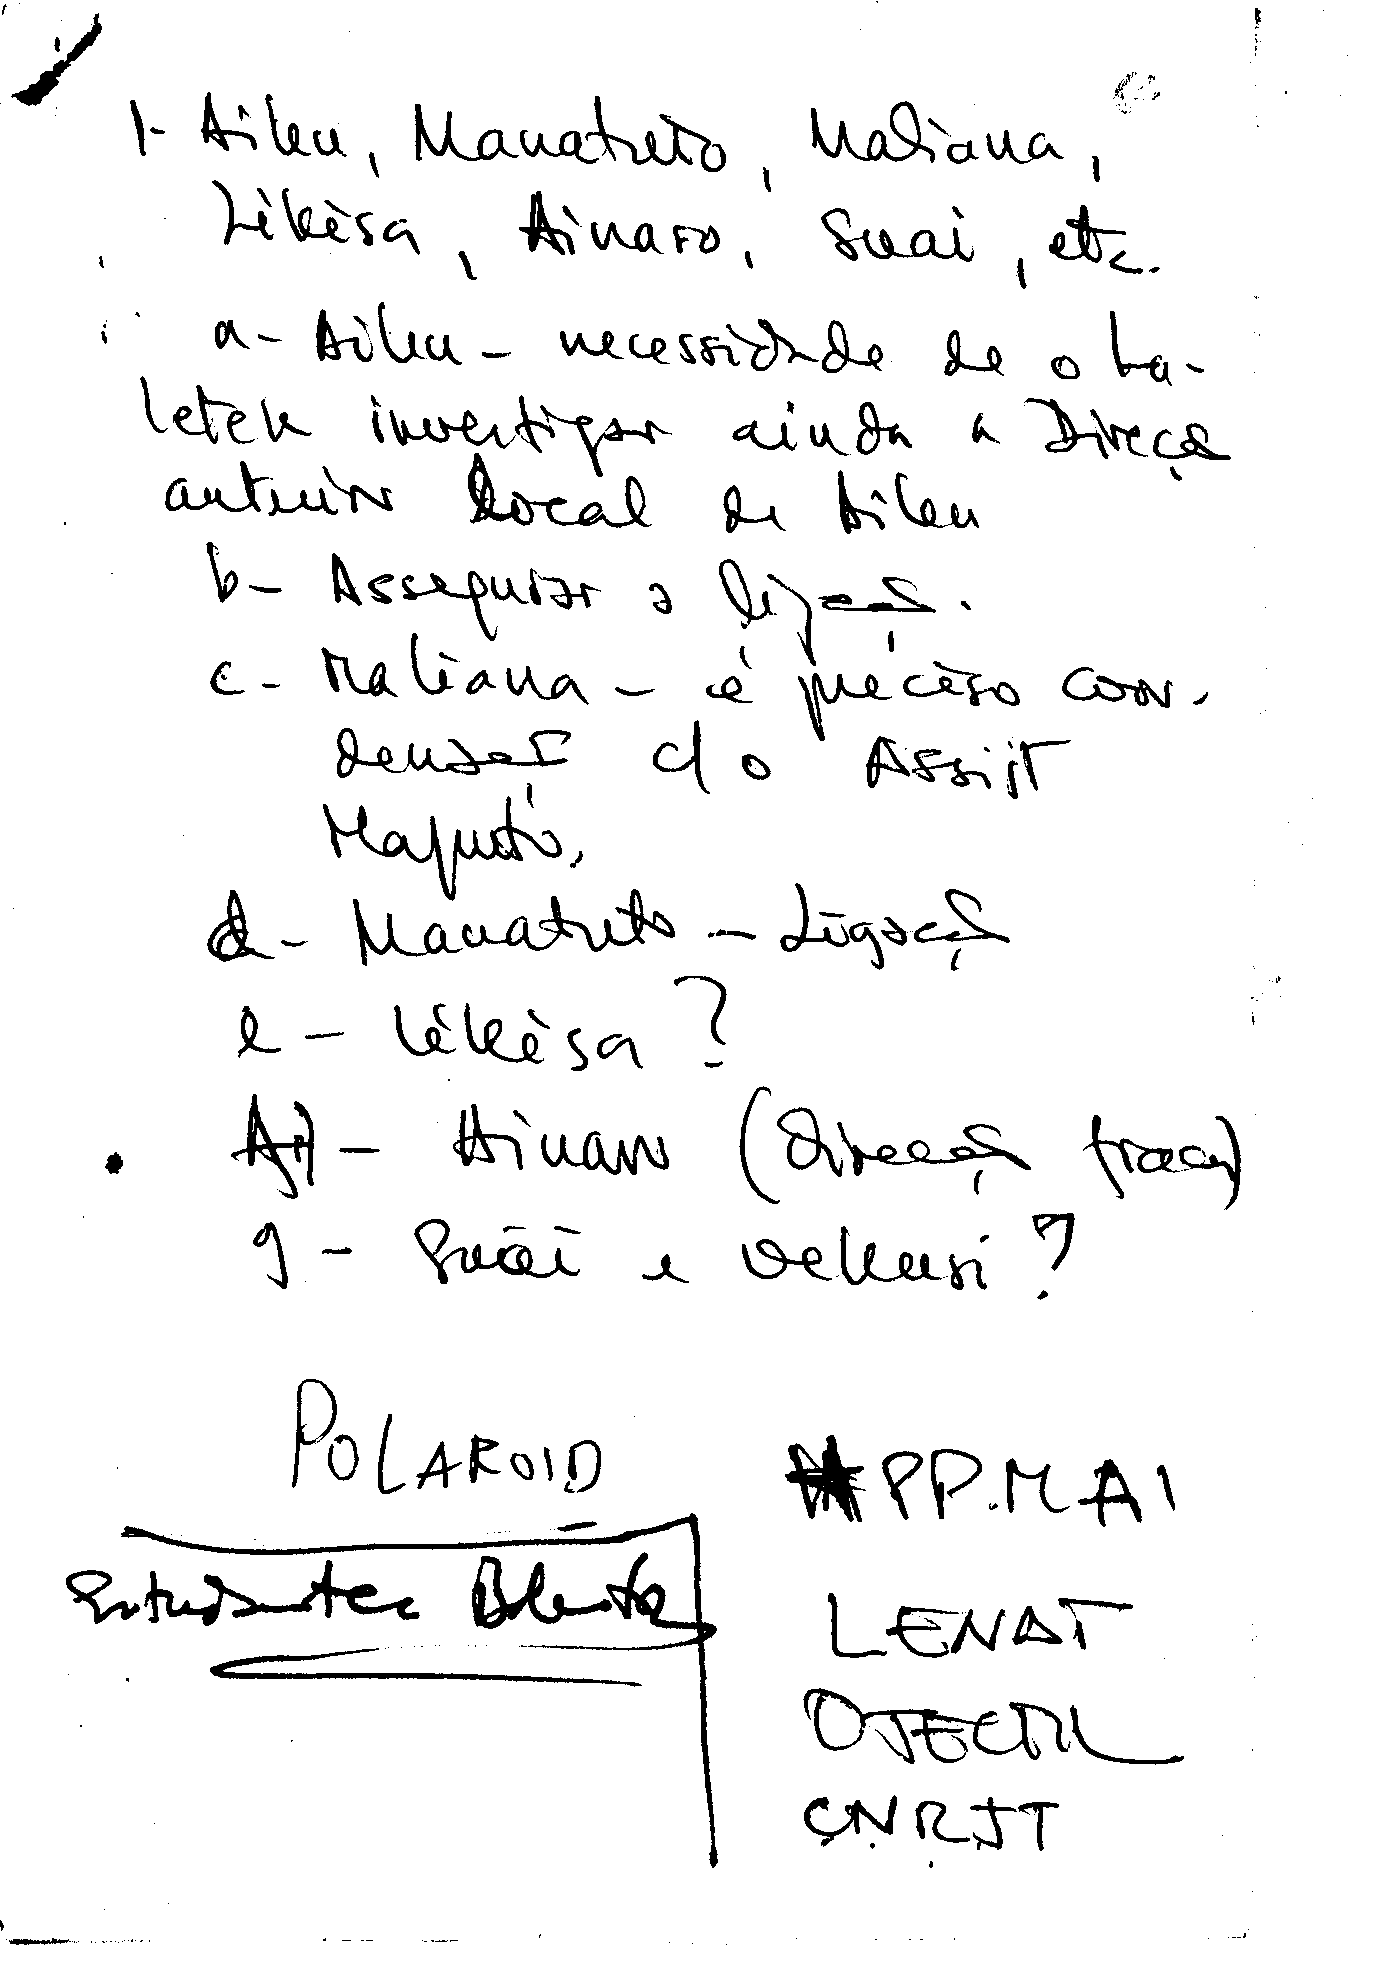 1- Aileu, Manatuto, Maliana,
Likisa, Ainaro, Suai, etc.
a- Aileu - necessidade de o La-
letek investigar ainda a Direcção
anterior local de Aileu
b- Assegurar a ligação.
c- Maliana - é preciso coor-
denação c/ o Assist
Maputo.
d- Manatuto - Ligação
e - Likisa?
f - Ainaro (Direcção fraca)
g - Suai e Oekusi?
POLAROID
PP.MAI
Estudantes
LENAT
OJECTIL
CNRJT